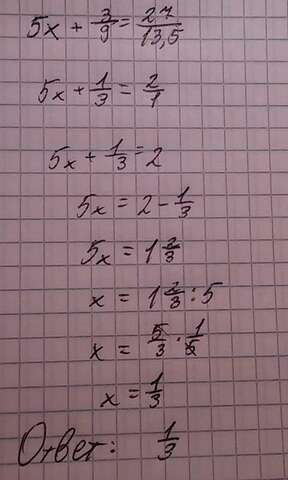 5x + 3/9 = 27/13,5
5x + 1/3 = 2/1
5x + 1/3 = 2
5x = 2 - 1/3
5x = 1 2/3
x = 1 2/3 : 5
x = 5/3 · 1/5
x = 1/3
Ответ: 1/3